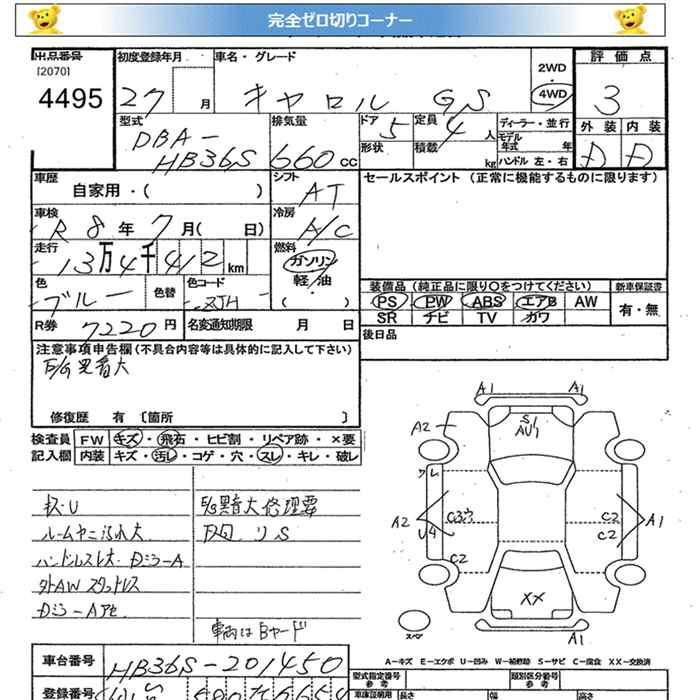 完全ゼロ切りコーナー
出品番号 初度登録年月 車名・グレード 評価点
[2070] 2WD
4495 27 月 キャロル GS ・ 4WD 3
型式 排気量 ドア 定員 ディーラー・並行 外装 内装
DBA-HB36S 660cc 5 4人 モデル年式 年 D D
形状 積載 kg ハンドル 左・右
車歴 シフト セールスポイント (正常に機能するものに限ります)
自家用・( ) AT
車検 冷房
R8年7月( 日) A/C
走行 燃料
13万4千412km ガソリン
軽・油
色 色替 色コード ( ・ ) 装備品 (純正品に限り〇をつけてください) 新車保証書
ブルー ZJH PS PW ABS エアB AW 有・無
SR ナビ TV カワ
R券 7220円 名変通知期限 月 日 後日品
注意事項申告欄(不具合内容等は具体的に記入して下さい)
E/G異音大
修復歴 有 〔箇所 〕
検査員 FW キズ・飛石・ヒビ割・リペア跡・×要
記入欄 内装 キズ・汚レ・コゲ・穴・スレ・キレ・破レ
A1 A1
S
AU1
A2
ワレ
A2 U4 C3穴 C2 A1
C2
C2
XX
スペア A1
キズ・U E/G異音大修理要
ルームヤニ汚れ大 下回リS
ハンドルスレ大・Dミラ-A
外AWスタッドレス
Dミラ-A色セ
車両はBヤード
A-キズ E-エクボ U-凹み W-補修跡 S-サビ C-腐食 XX-交換済
車台番号 HB36S-201450 型式指定番号 参考 類別区分番号 参考
登録番号 車庫証明用 長さ 幅 高さ